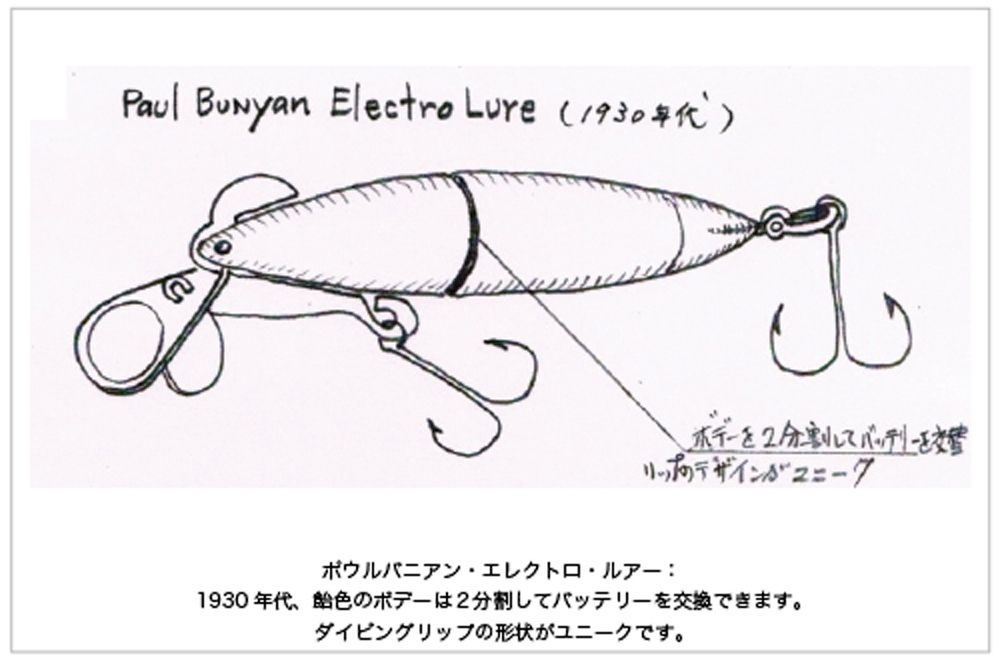 Paul Bunyan Electro Lure (1930年代)
ボデーを2分割してバッテリーを交替
リップのデザインがユニーク
ポウルバニアン・エレクトロ・ルアー：
1930年代、飴色のボデーは2分割してバッテリーを交換できます。
ダイビングリップの形状がユニークです。